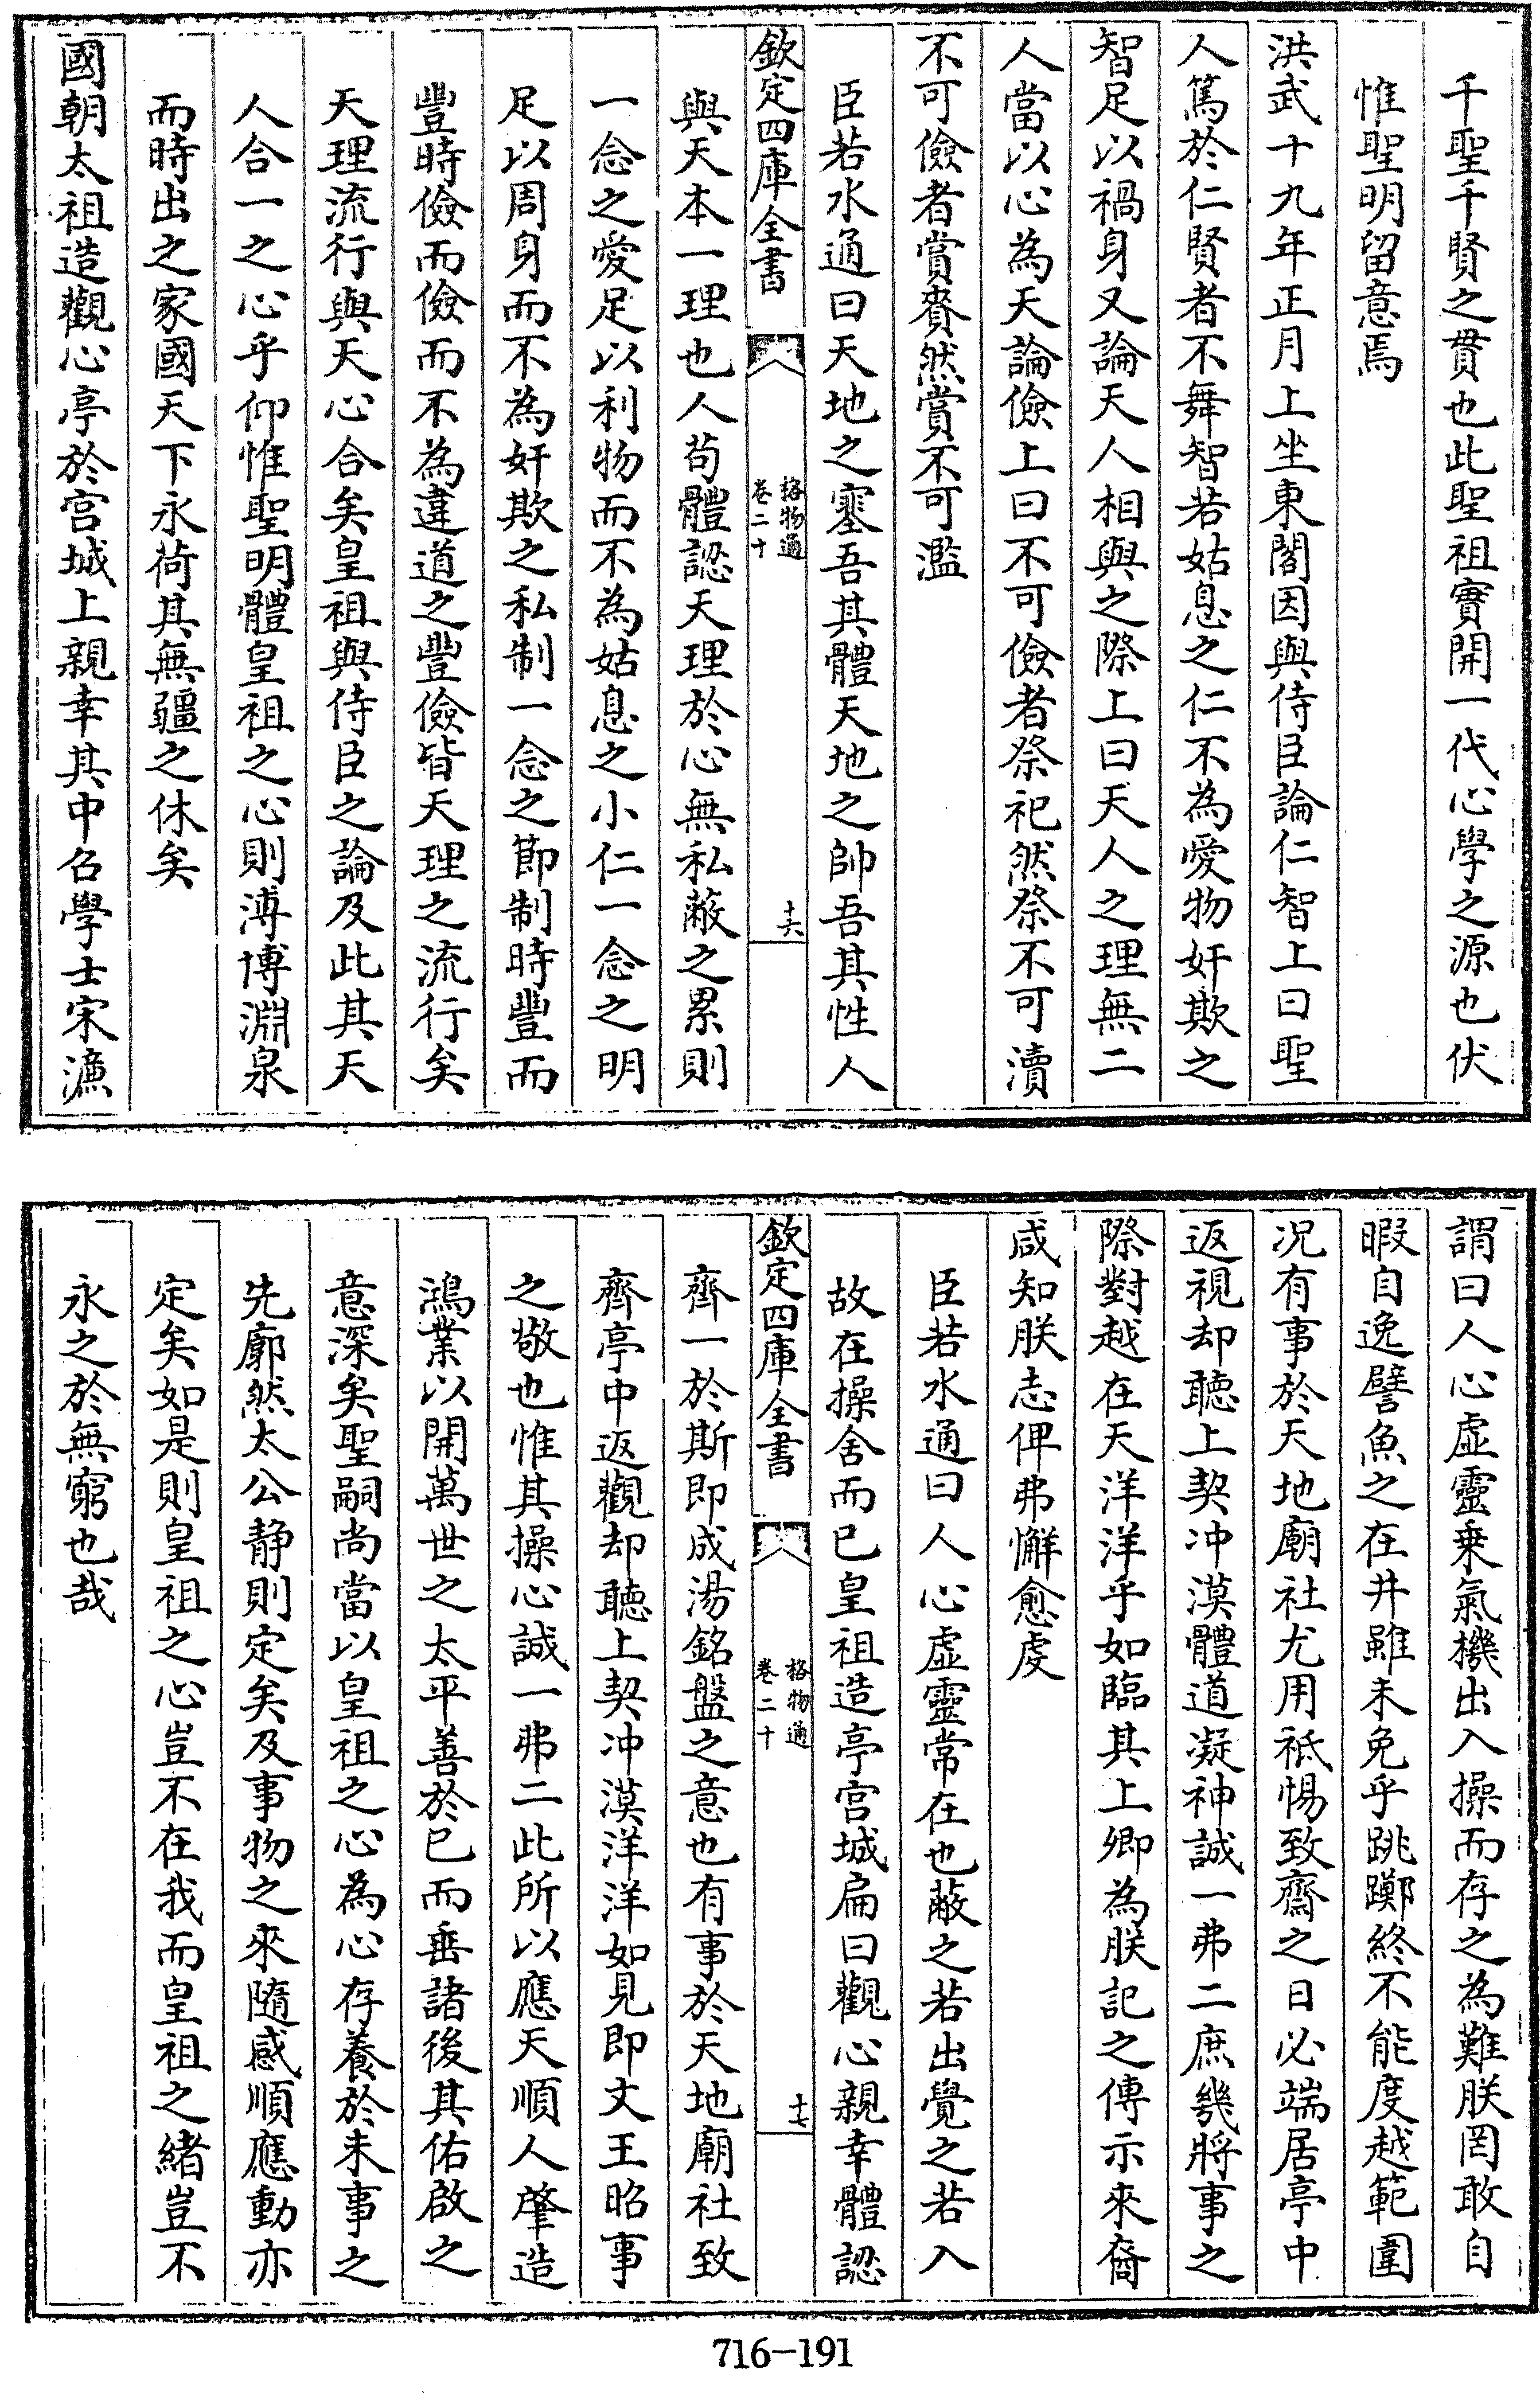 千聖千賢之貫也此聖祖實開一代心學之源也伏
惟聖明留意焉
洪武十九年正月上坐東閣因與侍臣論仁智上曰聖
人篤於仁賢者不舞智若姑息之仁不為愛物奸欺之
智足以禍身又論天人相與之際上曰天人之理無二
人當以心為天論儉上曰不可儉者祭祀然祭不可瀆
不可儉者賞賚然賞不可濫
臣若水通曰天地之塞吾其體天地之帥吾其性人
欽定四庫全書
格物通
卷二十
十六
與天本一理也人苟體認天理於心無私蔽之累則
一念之愛足以利物而不為姑息之小仁一念之明
足以周身而不為奸欺之私制一念之節制時豐而
豐時儉而儉而不為違道之豐儉皆天理之流行矣
天理流行與天心合矣皇祖與侍臣之論及此其天
人合一之心乎仰惟聖明體皇祖之心則溥博淵泉
而時出之家國天下永荷其無疆之休矣
國朝太祖造觀心亭於宫城上親幸其中召學士宋濂
謂曰人心虛靈乗氣機出入操而存之為難朕罔敢自
暇自逸譬魚之在井雖未免乎跳躑終不能度越範圍
况有事於天地廟社尤用祗惕致齋之日必端居亭中
返視却聽上契冲漠體道凝神誠一弗二庶幾將事之
際對越在天洋洋乎如臨其上卿為朕記之傳示來裔
咸知朕志俾弗懈愈虔
臣若水通曰人心虛靈常在也蔽之若出覺之若入
故在操舍而已皇祖造亭宫城扁曰觀心親幸體認
欽定四庫全書
格物通
卷二十
十七
齊一於斯即成湯銘盤之意也有事於天地廟社致
齊亭中返觀却聽上契冲漠洋洋如見即文王昭事
之敬也惟其操心誠一弗二此所以應天順人肇造
鴻業以開萬世之太平善於已而垂諸後其佑啟之
意深矣聖嗣尚當以皇祖之心為心存養於未事之
先廓然太公静則定矣及事物之來隨感順應動亦
定矣如是則皇祖之心豈不在我而皇祖之緒豈不
永之於無窮也哉
716-191